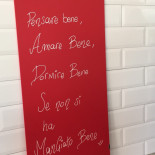 Pensare bene,
Amare Bene,
Dormire Bene
Se non si
ha
Mangiato Bene „